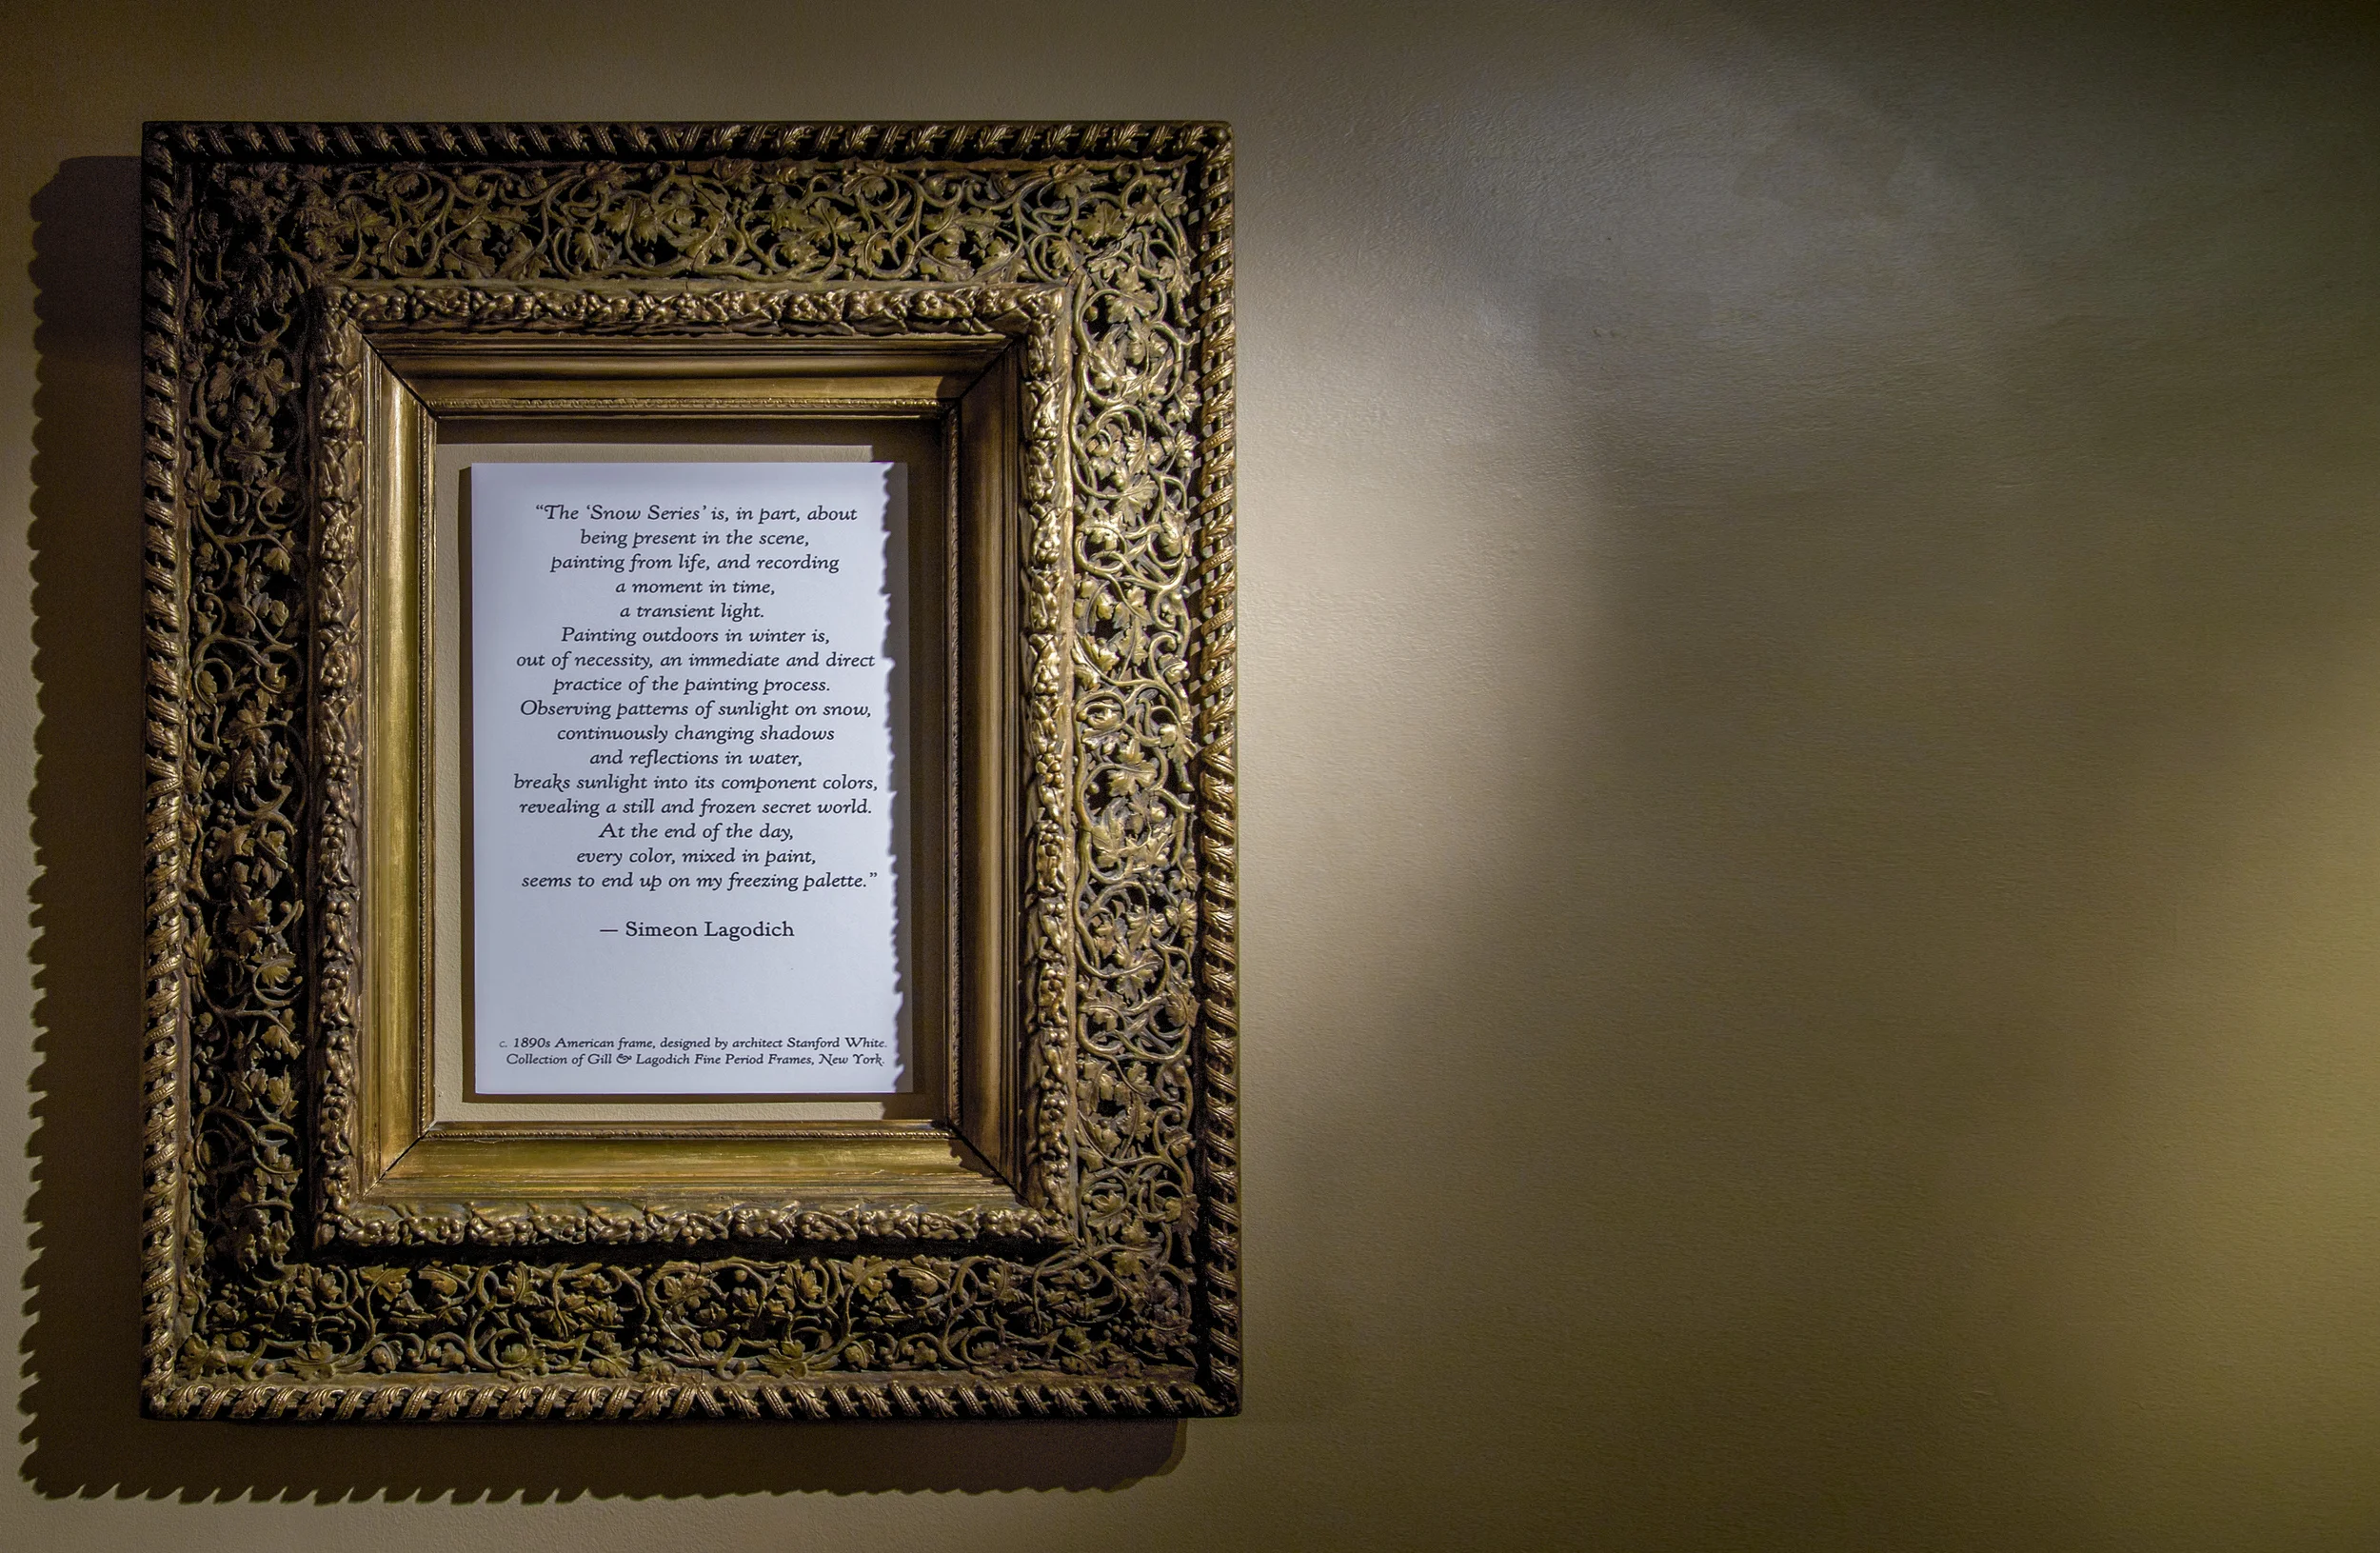 “The ‘Snow Series’ is, in part, about
being present in the scene,
painting from life, and recording
a moment in time,
a transient light.
Painting outdoors in winter is,
out of necessity, an immediate and direct
practice of the painting process.
Observing patterns of sunlight on snow,
continuously changing shadows
and reflections in water,
breaks sunlight into its component colors,
revealing a still and frozen secret world.
At the end of the day,
every color, mixed in paint,
seems to end up on my freezing palette.”
— Simeon Lagodich
c. 1890s American frame, designed by architect Stanford White.
Collection of Gill & Lagodich Fine Period Frames, New York.